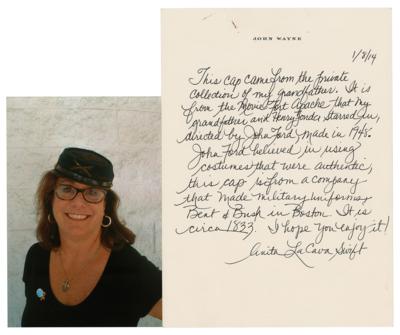 JOHN WAYNE
1/8/14
This cap came from the private
collection of my grandfather. It is
from the Movie Fort Apache that my
grandfather and Henry Fonda starred in,
directed by John Ford made in 1948.
John Ford believed in using
costumes that were authentic,
this cap is from a company
that made military uniforms,
Bent & Bush in Boston. It is
circa 1833. I hope you enjoy it!
Anita LaCava Swift